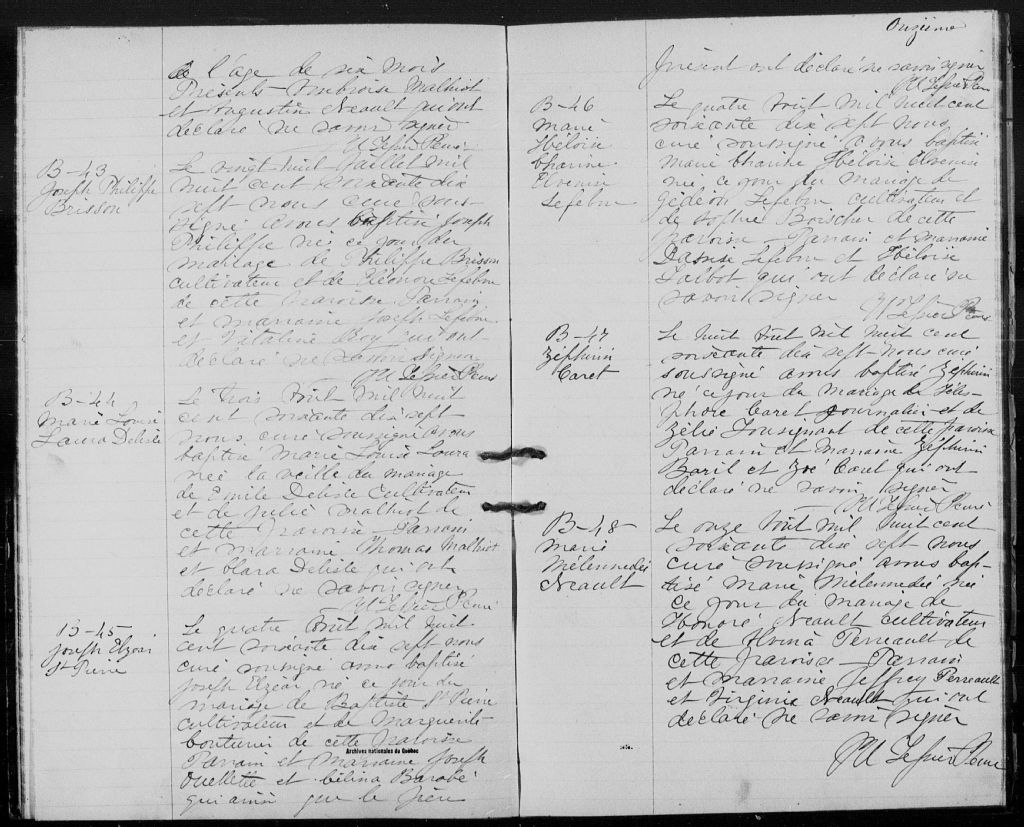 de l'age de six mois
Présents Ambroise Malhiot
et Augustin Neault qui ont
déclaré ne savoir signer
B-43
Joseph Philippe
Brisson
Le vingt huit Juillet mil
huit cent soixante dix
sept nous curé sous-
signé avons baptisé Joseph
Philippe né ce jour du
mariage de Philippe Brisson
cultivateur et de Eléonore Lefebvre
de cette paroisse Parrain
et marraine Joseph Lefebvre
et Nataline Roy qui ont
déclaré ne savoir signer
B-44
Marie Louise
Laura Delisle
Le trois Août mil huit
cent soixante dix sept
nous curé soussigné avons
baptisé Marie Louise Laura
née la veille du mariage
de Emile Delisle Cultivateur
et de Julie Malhiot de
cette paroisse - Parrain
et marraine Thomas Malhiot
et Clara Delisle qui ont
déclaré ne savoir signer
B-45
Joseph Elzéar
St Pierre
Le quatre Août mil huit
cent soixante dix sept nous
curé soussigné avons baptisé
Joseph Elzéar né ce jour du
mariage de Baptiste St Pierre
cultivateur et de Marguerite
de cette paroisse
Archives nationales du Québec
Parrain et Marraine Joseph
Ouellette et Célina
qui ainsi que le père
Onzième
présent ont déclaré ne savoir signer
B-46
Marie
Héloise
Elvenise
Lefebvre
Le quatre Août mil huit cent
soixante dix sept nous
curé soussigné avons baptisé
Marie Héloise Elvenise
née ce jour du mariage de
Gédéon Lefebvre cultivateur et
de Sophie de cette
paroisse - Parrain et marraine
Lefebvre et Héloise
Talbot qui ont déclaré ne
savoir signer
B-47
Zéphirin
Caret
Le huit Août mil huit cent
soixante dix sept - Nous curé
soussigné avons baptisé Zéphirin
né ce jour du mariage de Téles-
phore Caret Journalier et de
Zélie Tousignant de cette paroisse
Parrain et Marraine Zéphirin
Baril et Zoé Caret qui ont
déclaré ne savoir signer
B-48
Marie
Mélennedée
Neault
Le onze Août mil huit cent
soixante dix sept nous
curé soussigné avons bap-
tisé Marie Mélennedée née
ce jour du mariage de
Honoré Neault cultivateur
et de Perreault de
cette paroisse - Parrain
et Marraine Jeffrey Perreault
et Virginie Neault qui ont
déclaré ne savoir signer